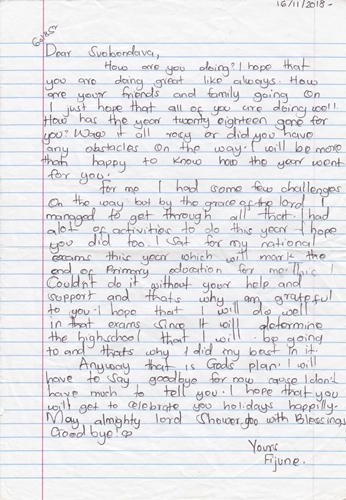 16/11/2018-
Dear Svobondava,
How are you doing? I hope that
you are doing great like always. How
are your friends and family going on
I just hope that all of you are doing well.
How has the year twenty eighteen gone for
you? Was it all rosy or did you have
any obstacles on the way. I will be more
than happy to know how the year went
for you.
For me I had some few challenges
on the way but by the grace of the lord I
managed to get through all that. I had
alot of activities to do this year I hope
you did too. I sat for my national
exams this year which will mark the
end of Primary education for me. I
Couldn't do it without your help and
support and thats why am grateful
to you. I hope that I will do well
in that exams since It will determine
the highschool that I will be going
to and thats why I did my best in it.
Anyway that is Gods plan. I will
have to say goodbye for now cause I don't
have much to tell you. I hope that you
will get to celebrate you holidays happilly.
May almighty lord shower you with Blessings
Good bye
Yours
Fijune.